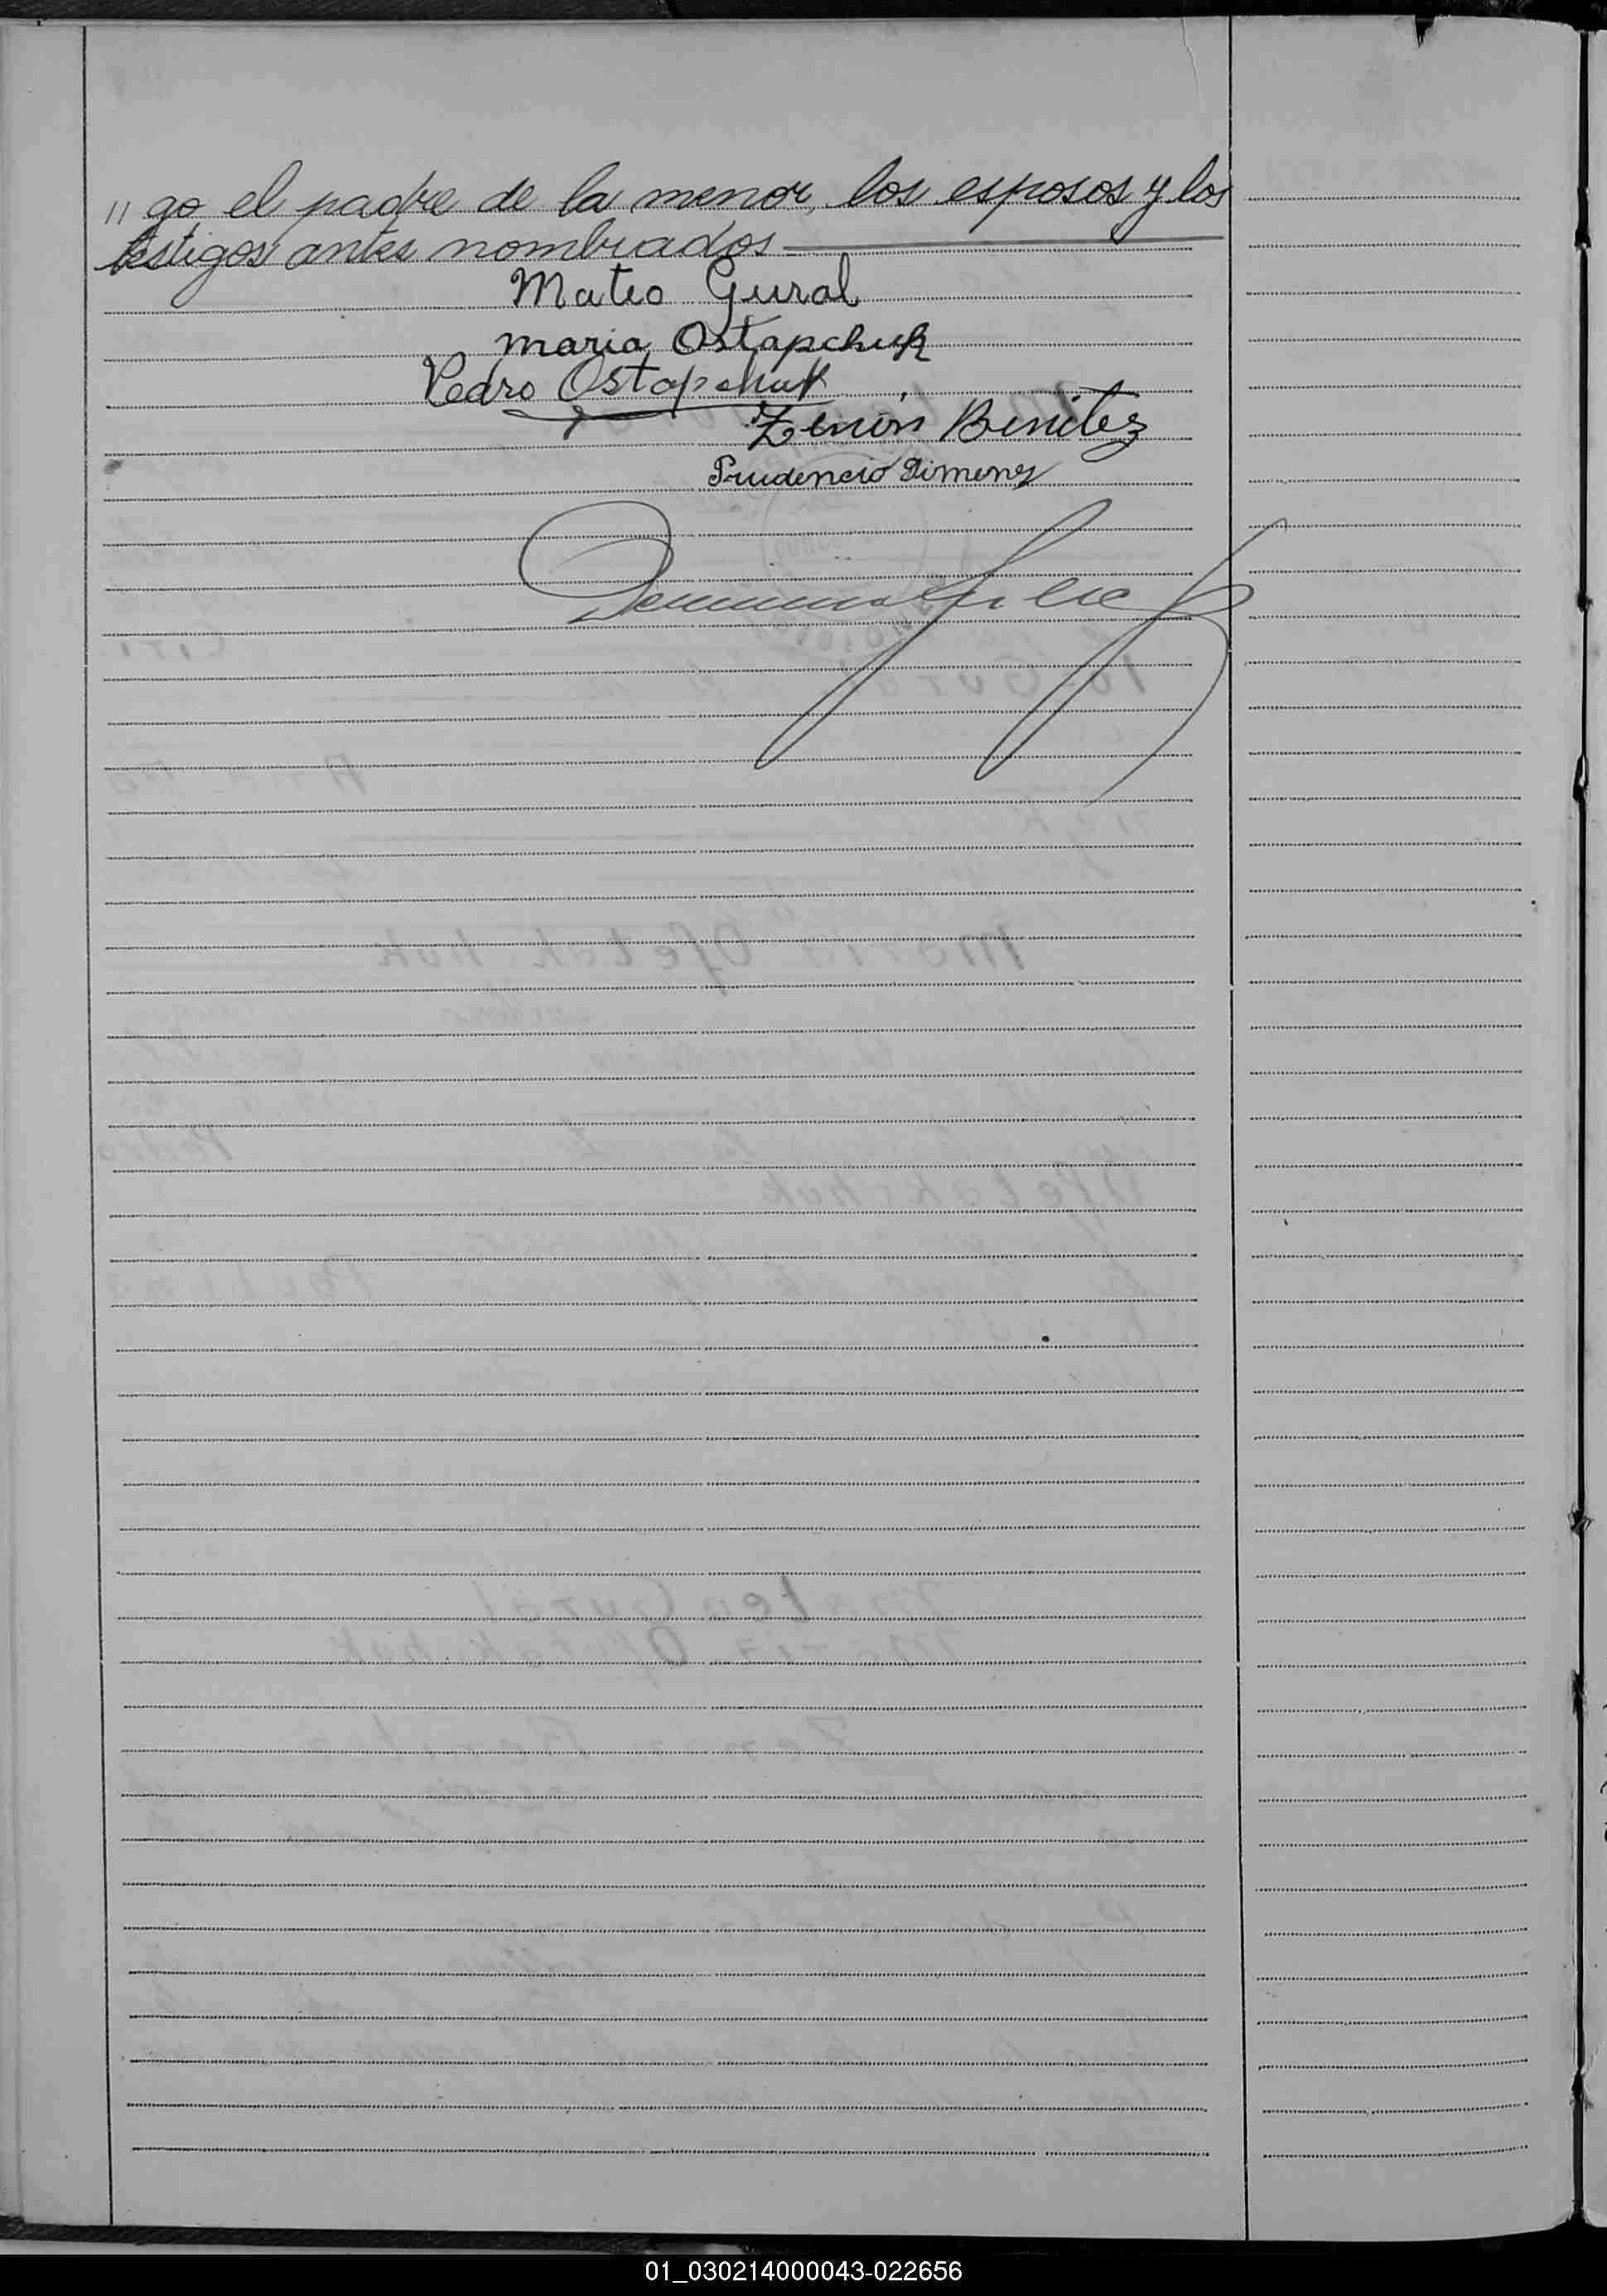 " go el padre de la menor, los esposos y los
testigos antes nombrados
Mateo Gural
maria Ostapchuk
Pedro Ostapchuk
Zenón Benitez
Prudencio Jimenez
01_030214000043-022656